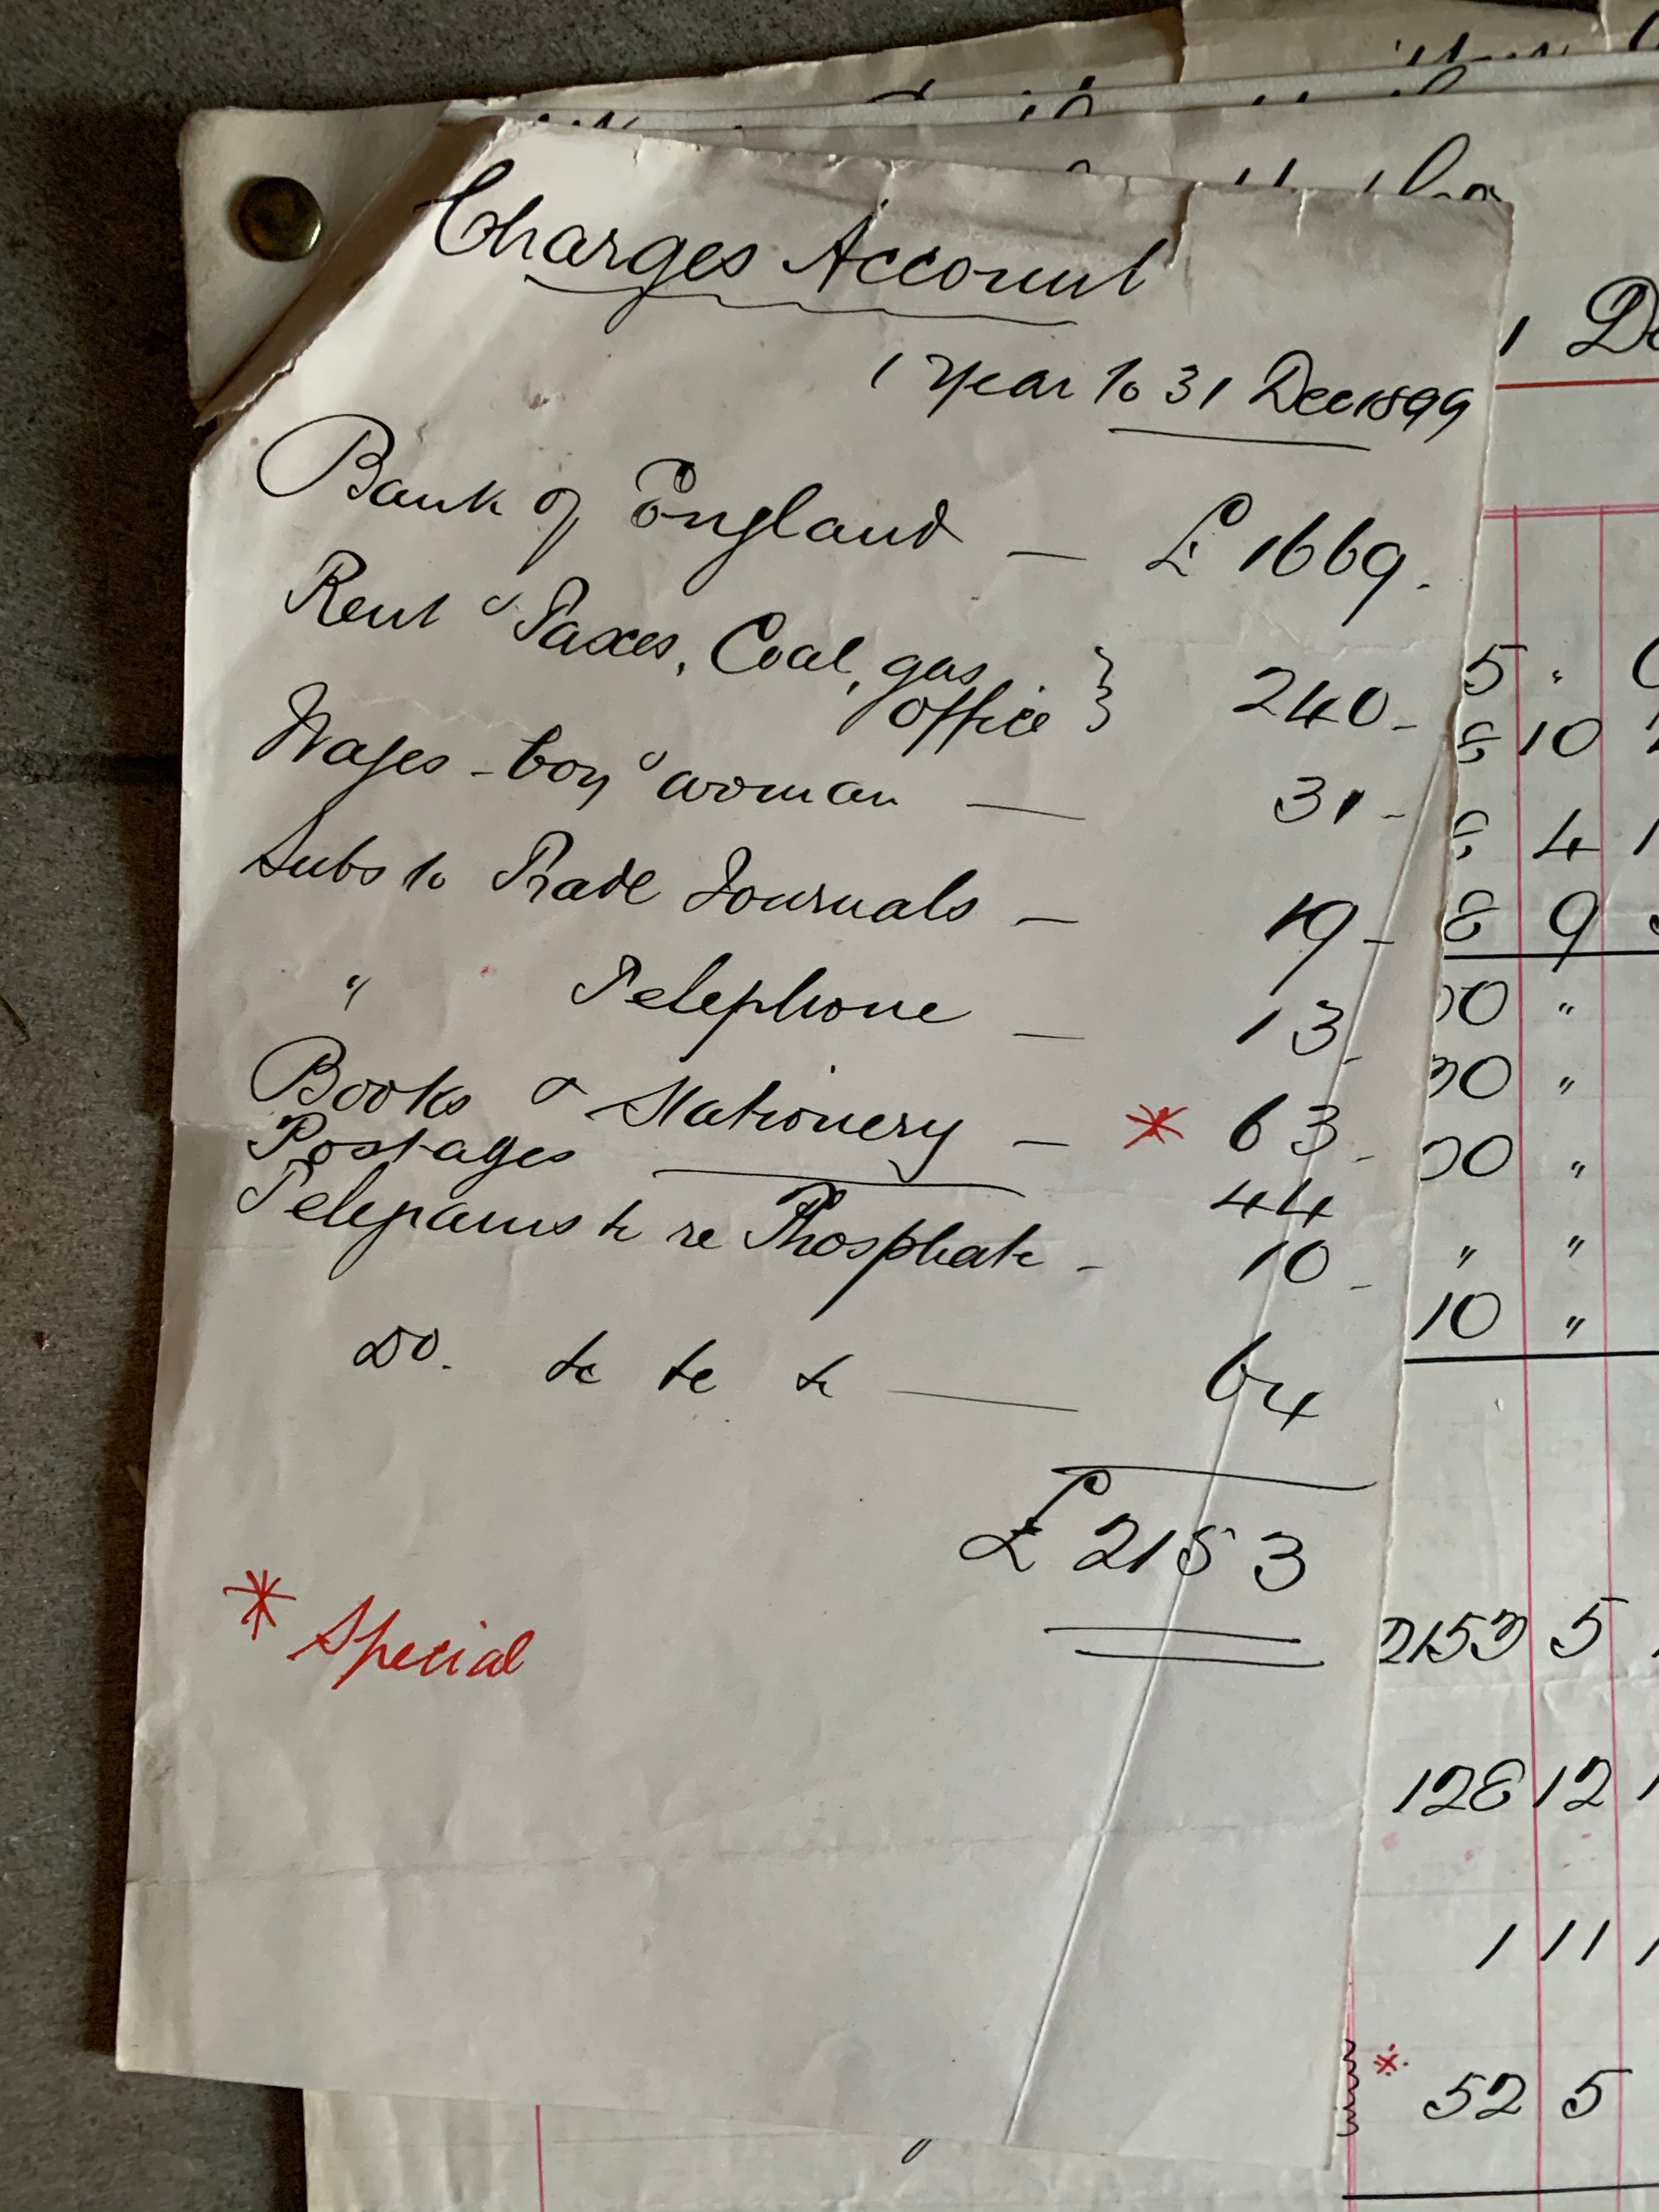 Charges Account
1 Year to 31 Dec 1899
Bank of England — £ 1669.
Rent & Taxes, Coal, gas,
office } 240-
Wages - boy & woman — 31-
Subs to Trade Journals — 19-
" Telephone — 13-
Books & Stationery — * 63-
Postages — 44
Telegrams &c re Phosphate - 10-
Do. &c &c &c — 64
£ 2153
* Special
5 "
8 10
8 4
8 9
00 "
00 "
00 "
" "
10 "
2153 5
128 12
1 11
* 52 5